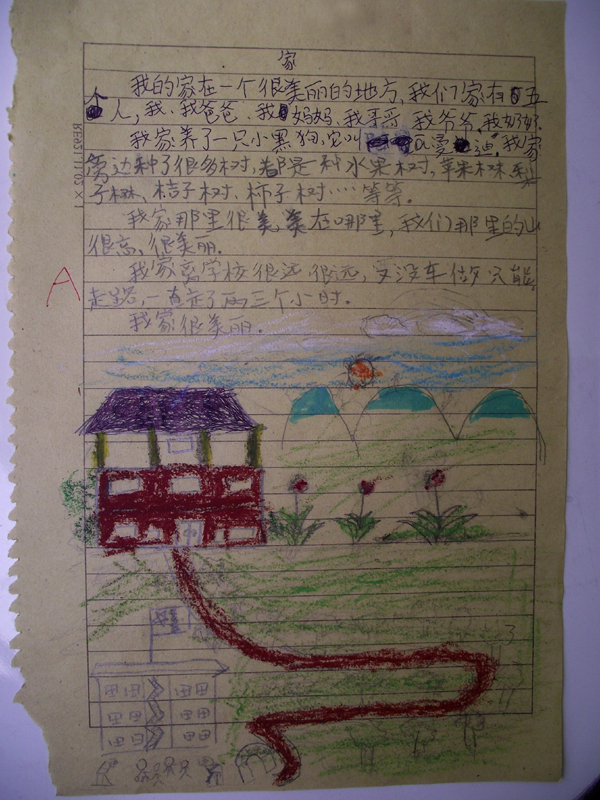 家
我的家在一个很美丽的地方,我们家有五
个人,我、我爸爸、我妈妈、我哥哥、我爷爷、我奶奶.
我家养了一只小黑狗,它叫 迪,我家
旁边种了很多树,都是一种水果树,苹果树、梨
子树、桔子树、柿子树……等等.
我家那里很美,美在哪里,我们那里的山
很高,很美丽.
我家离学校很远,很远,又没车 只能
走路,一直走了两三个小时.
我家很美丽.
A